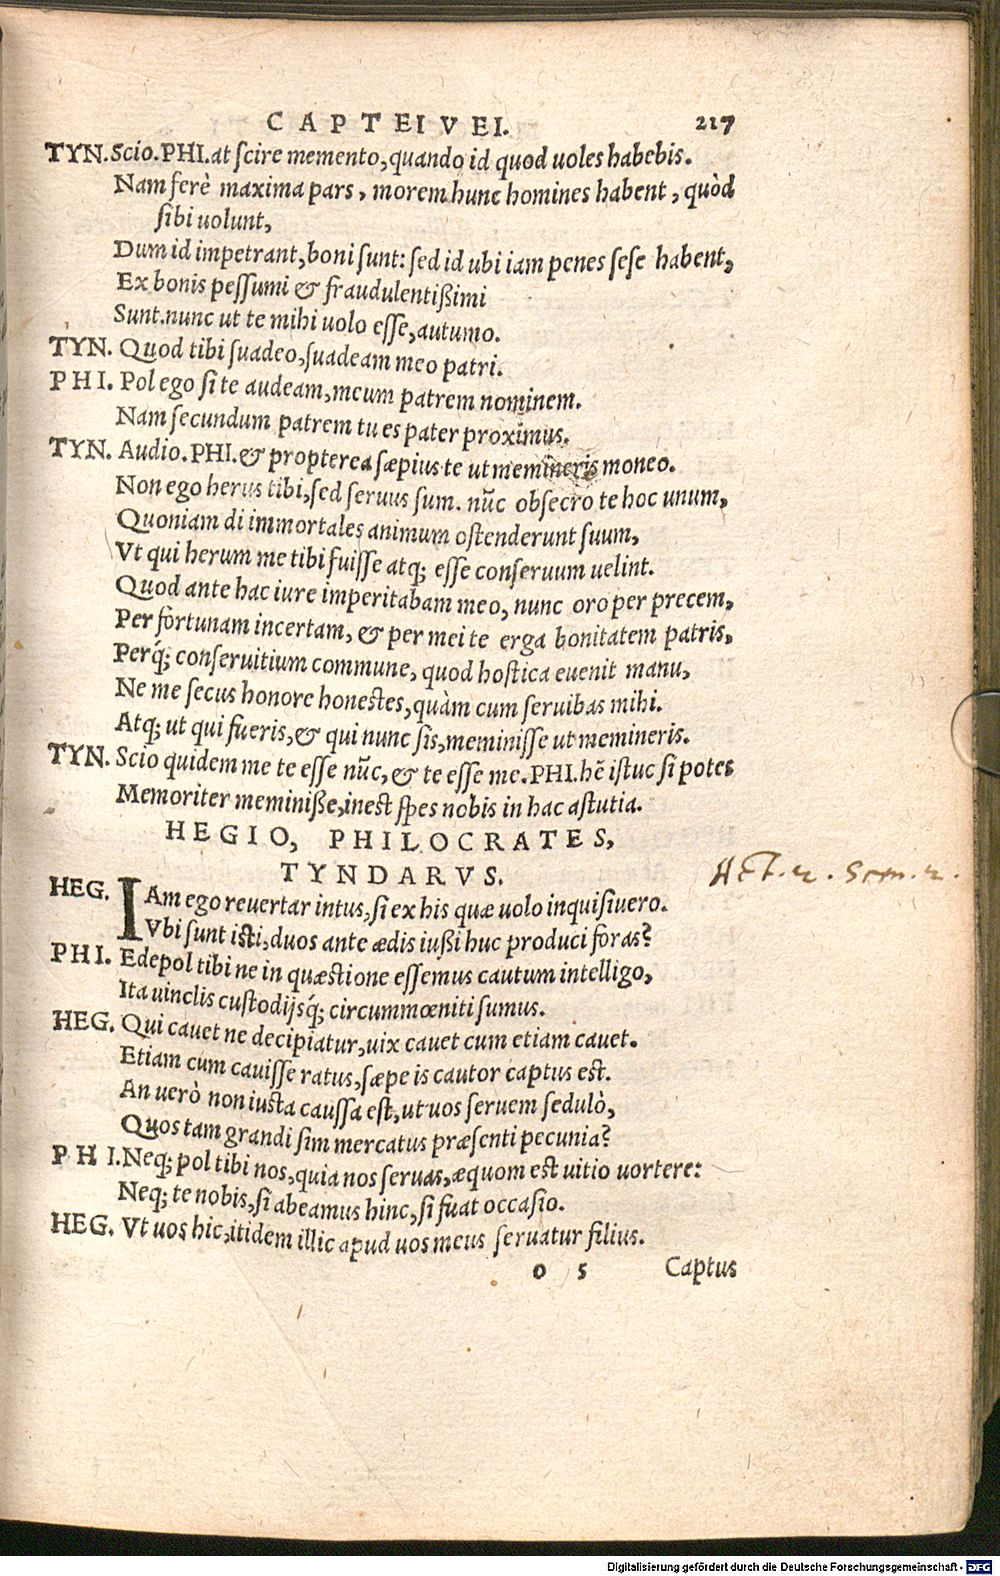 CAPTEIVEI. 217
TYN. Scio. PHI. at scire memento, quando id quod uoles habebis.
Nam ferè maxima pars, morem hunc homines habent, quòd
sibi uolunt,
Dum id impetrant, boni sunt: sed id ubi iam penes sese habent,
Ex bonis pessumi & fraudulentißimi
Sunt. nunc ut te mihi uolo esse, autumo.
TYN. Quod tibi suadeo, suadeam meo patri.
PHI. Pol ego si te audeam, meum patrem nominem.
Nam secundum patrem tu es pater proximus.
TYN. Audio. PHI. & propterea sæpius te ut memineris moneo.
Non ego herus tibi, sed seruus sum. nũc obsecro te hoc unum,
Quoniam di immortales animum ostenderunt suum,
Vt qui herum me tibi fuisse atq; esse conseruum uelint.
Quod ante hac iure imperitabam meo, nunc oro per precem,
Per fortunam incertam, & per mei te erga bonitatem patris,
Perq́; conseruitium commune, quod hostica euenit manu,
Ne me secus honore honestes, quàm cum seruibas mihi.
Atq; ut qui fueris, & qui nunc sis, meminisse ut memineris.
TYN. Scio quidem me te esse nũc, & te esse me. PHI. hẽ istuc si potes
Memoriter meminiße, inest spes nobis in hac astutia.
HEGIO, PHILOCRATES,
TYNDARVS.
Act. 2. Scen. 2.
HEG. IAm ego reuertar intus, si ex his quæ uolo inquisiuero.
Vbi sunt isti, duos ante ædis iußi huc produci foras?
PHI. Edepol tibi ne in quæstione essemus cautum intelligo,
Ita uinclis custodijsq́; circummœniti sumus.
HEG. Qui cauet ne decipiatur, uix cauet cum etiam cauet.
Etiam cum cauisse ratus, sæpe is cautor captus est.
An uerò non iusta caussa est, ut uos seruem sedulò,
Quos tam grandi sim mercatus præsenti pecunia?
PHI. Neq; pol tibi nos, quia nos seruas, æquom est uitio uortere:
Neq; te nobis, si abeamus hinc, si fuat occasio.
HEG. Vt uos hic, itidem illic apud uos meus seruatur filius.
o 5 Captus
Digitalisierung gefördert durch die Deutsche Forschungsgemeinschaft - DFG